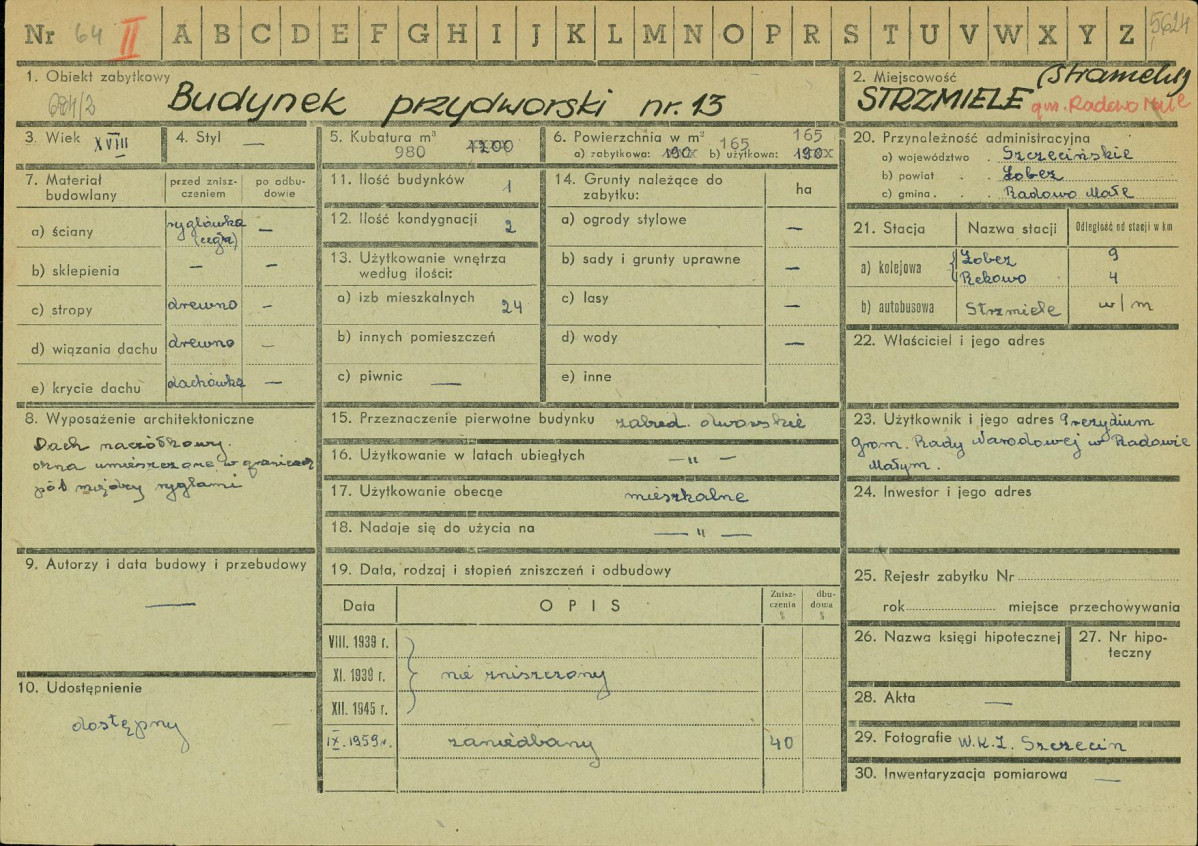 Nr 64 II A B C D E F G H I J K L M N O P R S T U V W X Y Z 5624
1. Obiekt zabytkowy
681/3
Budynek przydworski nr. 13
2. Miejscowość
(Stramehl)
STRZMIELE gm. Radowo Małe
3. Wiek XVIII
4. Styl —
5. Kubatura m³
980 1200
6. Powierzchnia w m²
a) zabytkowa: 190 165 b) użytkowa: 190 165
7. Materiał budowlany
przed zniszczeniem
po odbudowie
a) ściany ryglówka (cegła) —
b) sklepienia — —
c) stropy drewno —
d) wiązania dachu drewno —
e) krycie dachu dachówka —
11. Ilość budynków 1
12. Ilość kondygnacji 2
13. Użytkowanie wnętrza
według ilości:
a) izb mieszkalnych 24
b) innych pomieszczeń
c) piwnic —
14. Grunty należące do
zabytku: ha
a) ogrody stylowe —
b) sady i grunty uprawne —
c) lasy —
d) wody —
e) inne
20. Przynależność administracyjna
a) województwo . Szczecińskie
b) powiat . . Łobez
c) gmina . . Radowo Małe
21. Stacja Nazwa stacji Odległość od stacji w km
a) kolejowa Łobez 9
Rekowo 4
b) autobusowa Strzmiele w/m
22. Właściciel i jego adres
8. Wyposażenie architektoniczne
Dach naczółkowy.
okna umieszczone w granicach
pól między ryglami
9. Autorzy i data budowy i przebudowy
—
10. Udostępnienie
dostępny
15. Przeznaczenie pierwotne budynku zabud. dworskie
16. Użytkowanie w latach ubiegłych — " —
17. Użytkowanie obecne mieszkalne
18. Nadaje się do użycia na — " —
19. Data, rodzaj i stopień zniszczeń i odbudowy
Data OPIS Zniszczenia % dbudowa %
VIII. 1939 r.
XI. 1939 r. nie zniszczony
XII. 1945 r.
IX. 1959 r. zaniedbany 40
23. Użytkownik i jego adres Prezydium
Grom. Rady Narodowej w Radowie
Małym.
24. Inwestor i jego adres
25. Rejestr zabytku Nr
rok miejsce przechowywania
26. Nazwa księgi hipotecznej
27. Nr hipoteczny
28. Akta —
29. Fotografie W.K.Z. Szczecin
30. Inwentaryzacja pomiarowa —